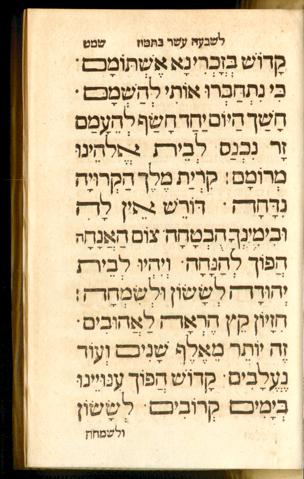 לשבעה עשר בתמוז שמט
קָדוֹשׁ בְּזָכְרִי נָא אֶשְׁתּוֹמַם׃
כִּי נִתְחַבְּרוּ אוֹתִי לְהַשְׁמֵם׃
חָשַׁךְ הַיּוֹם יַחַד חָשַׂף לְהַעֲמֵם
זָר נִכְנַס לְבֵית אֱלֹהֵינוּ
מְרוֹמָם׃ קִרְיַת מֶלֶךְ הַקְּרוּיָה
נִדָּחָה׃ דּוֹרֵשׁ אֵין לָהּ
וּבִימִינְךָ הֻבְטָחָה צוֹם הָאֲנָחָה
הֲפוֹךְ לַהֲנָחָה׃ וְיִהְיוּ לְבֵית
יְהוּדָה לְשָׂשׂוֹן וּלְשִׂמְחָה׃
חִזָּיוֹן קֵץ הֶרְאָה לַאֲהוּבִים׃
זֶה יוֹתֵר מֵאֶלֶף שָׁנִים וְעוֹד
נֶעֱלָבִים׃ קָדוֹשׁ הֲפוֹךְ עִנּוּיֵינוּ
בְּיָמִים קְרוֹבִים׃ לְשָׂשׂוֹן
ולשמחה